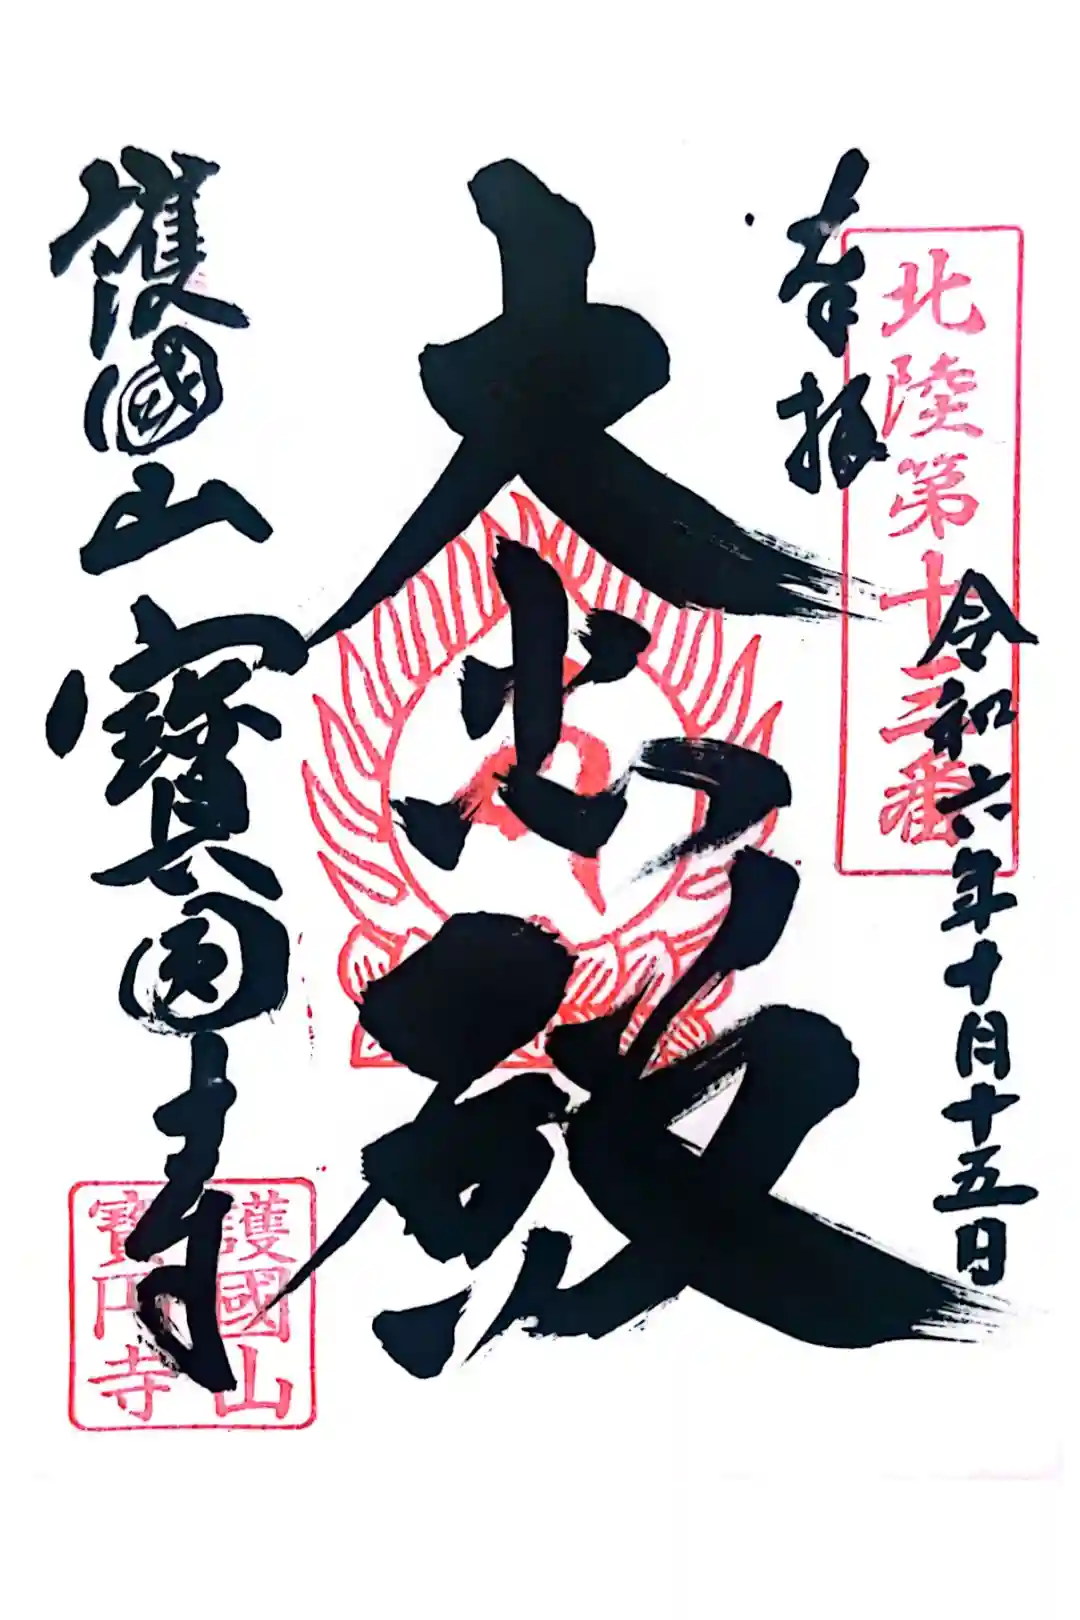 奉拝
北陸第十三番
令和六年十月十五日
大悲殿
護國山寶圓寺
護國山
寶円寺